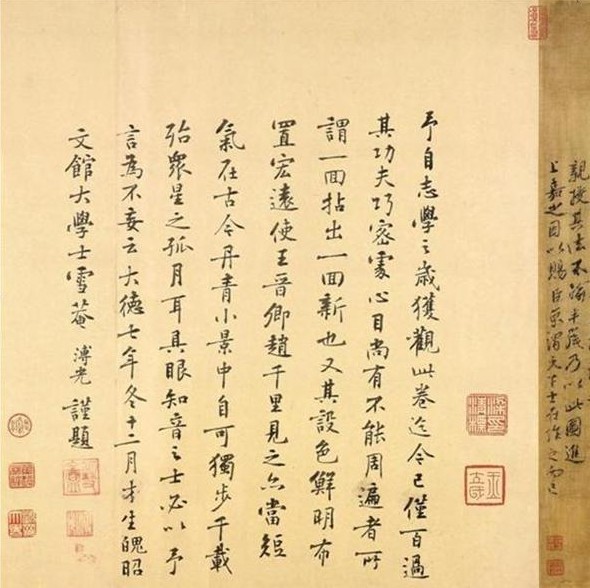 親授其法不踰半歲乃以此圖進
上嘉之因以賜臣京謂天下士在作之而已
予自志學之歲獲觀此卷迄今已僅百過
其功夫巧密處心目尚有不能周遍者所
謂一囬拈出一囬新也又其設色鮮明布
置宏遠使王晉卿趙千里見之亦當短
氣在古今丹青小景中自可獨步千載
殆眾星之孤月耳具眼知音之士必以予
言為不妄云大德七年冬十二月才生魄昭
文館大學士雪菴溥光謹題